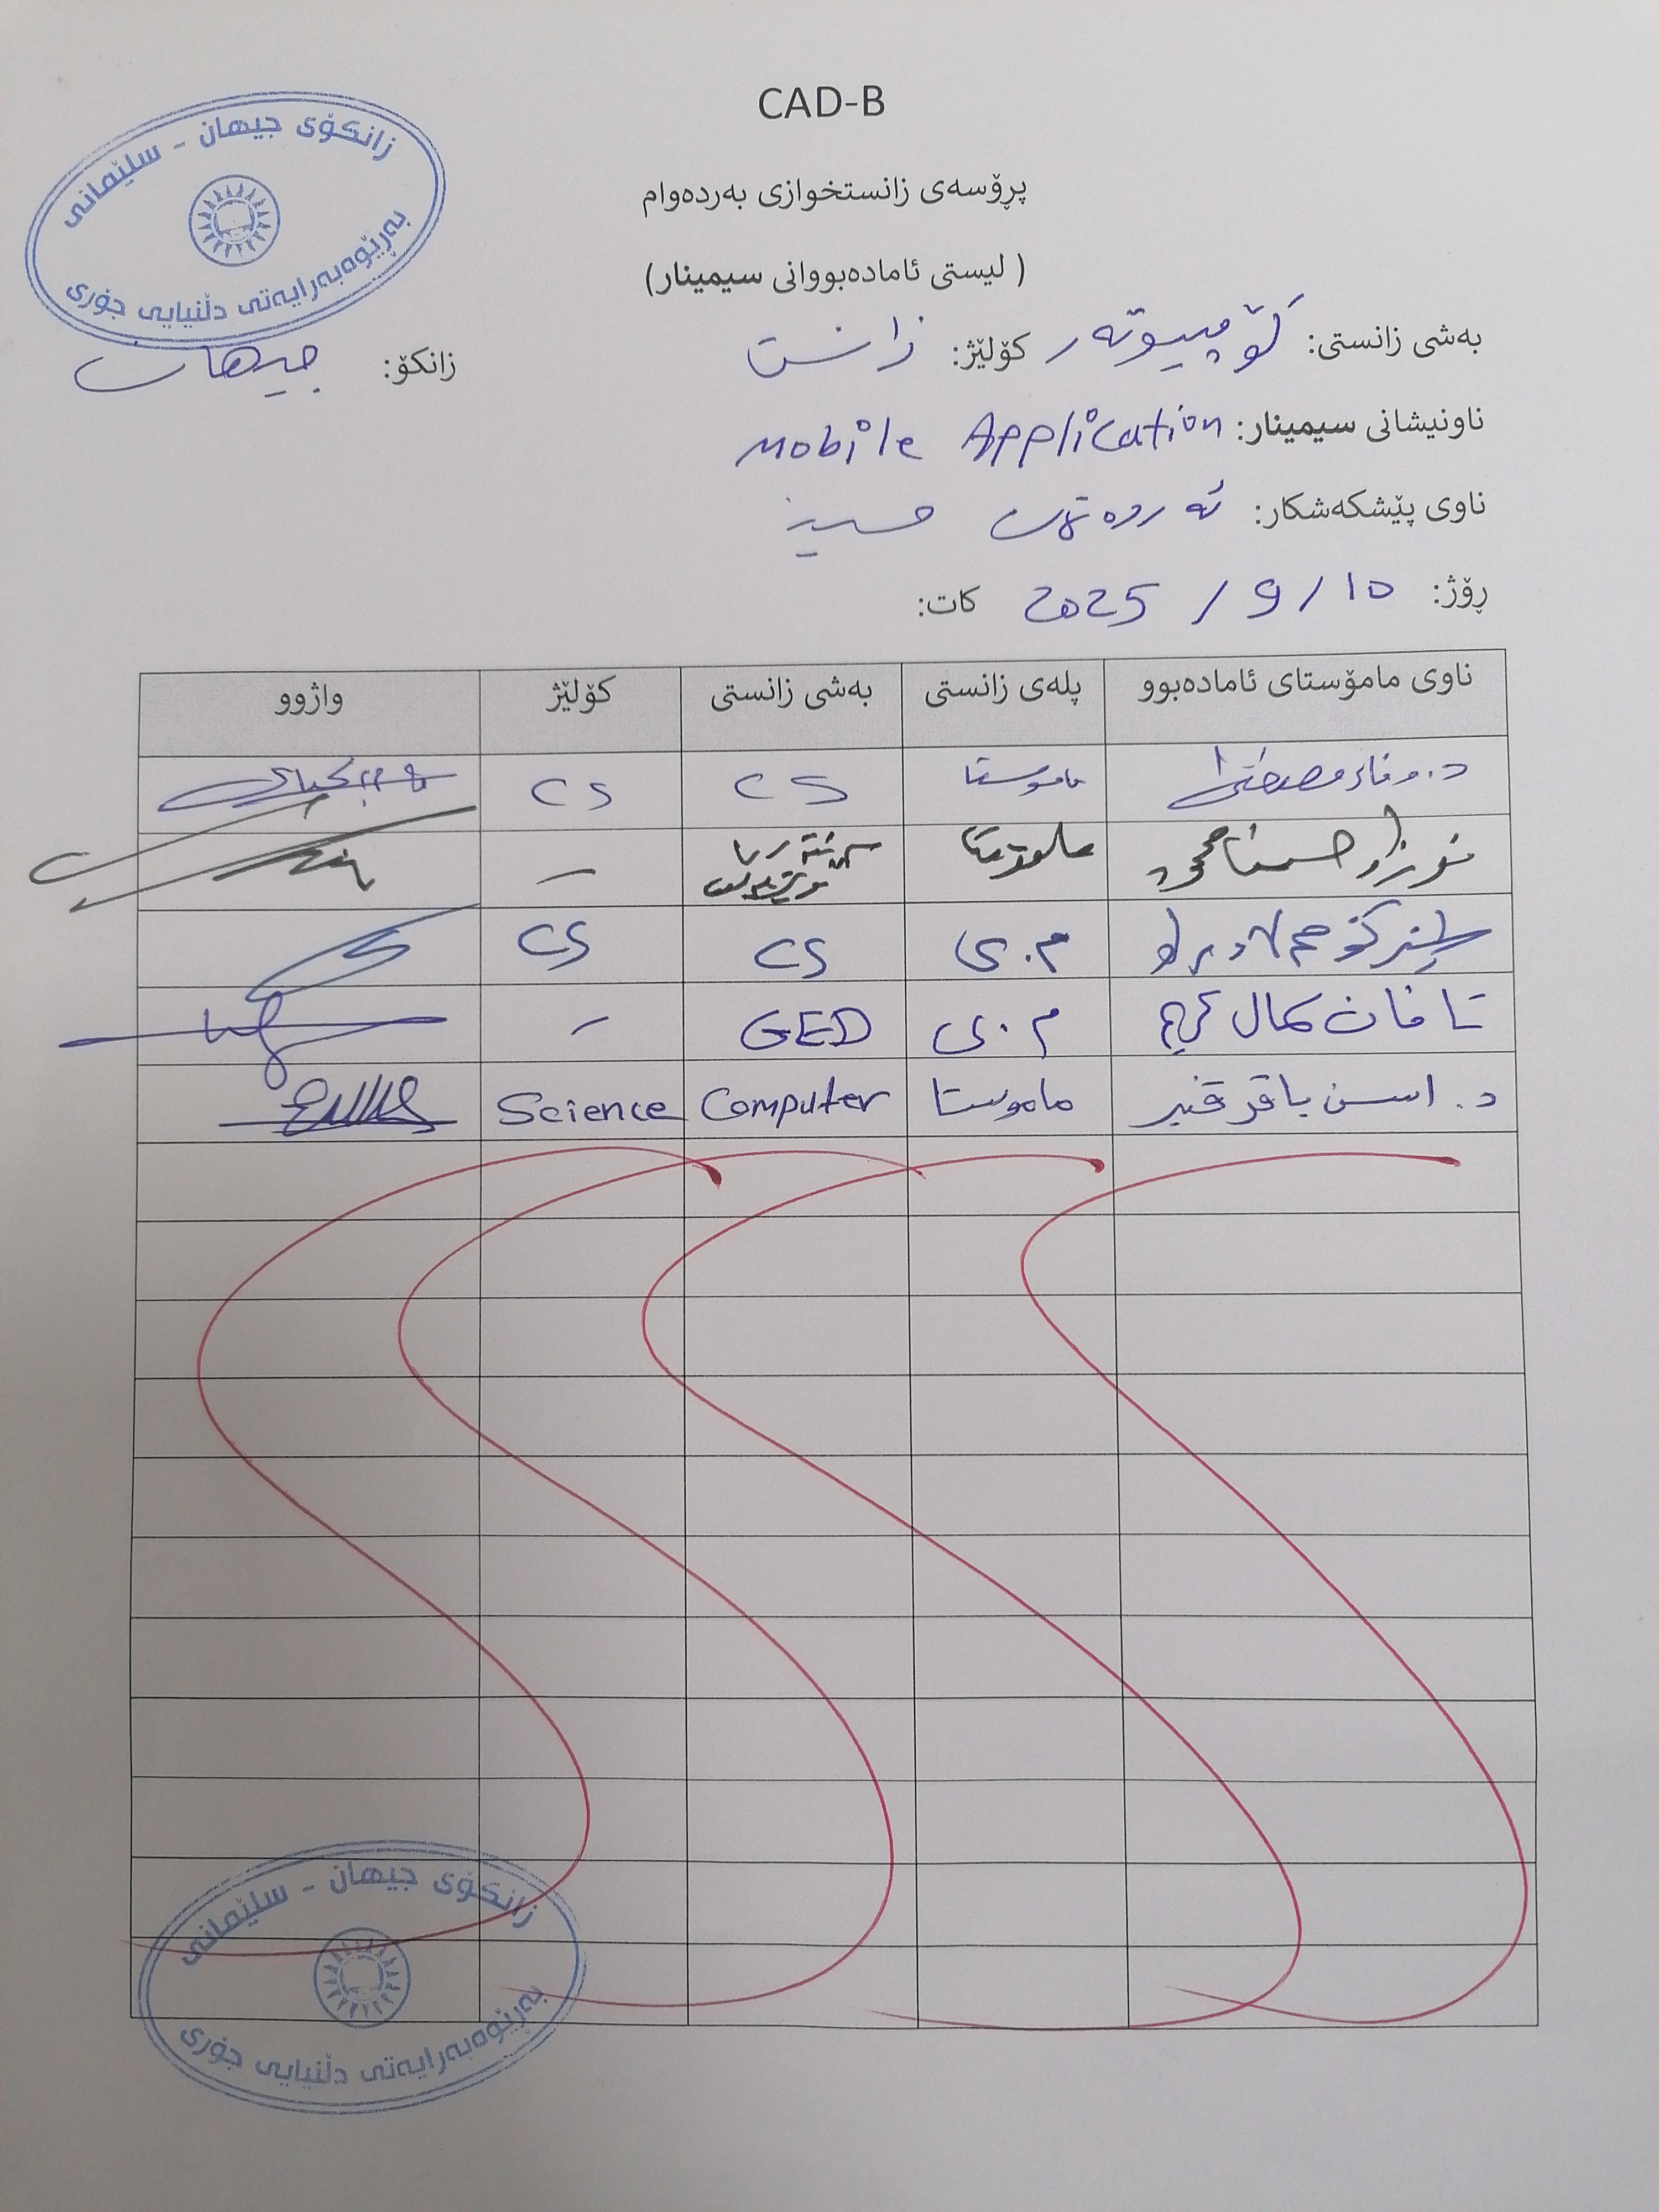 CAD-B
زانکۆی جیهان - سلێمانی
بەڕێوەبەرایەتی دڵنیایی جۆری
پڕۆسەی زانستخوازی بەردەوام
( لیستی ئامادەبووانی سیمینار)
بەشی زانستی: کۆمپیوتەر کۆلێژ: زانست زانکۆ: جیهان
ناونیشانی سیمینار: Mobile Application
ناوی پێشکەشکار:
ڕۆژ: 10 / 9 / 2025 کات:
ناوی مامۆستای ئامادەبوو پلەی زانستی بەشی زانستی کۆلێژ واژوو
د. وفاء مصطفی ماموستا CS CS
مامۆستا –
م.ی CS CS
تافان کمال کریم م.ی GED –
د. باقر قنبر ماموستا Computer Science
زانکۆی جیهان - سلێمانی
بەڕێوەبەرایەتی دڵنیایی جۆری